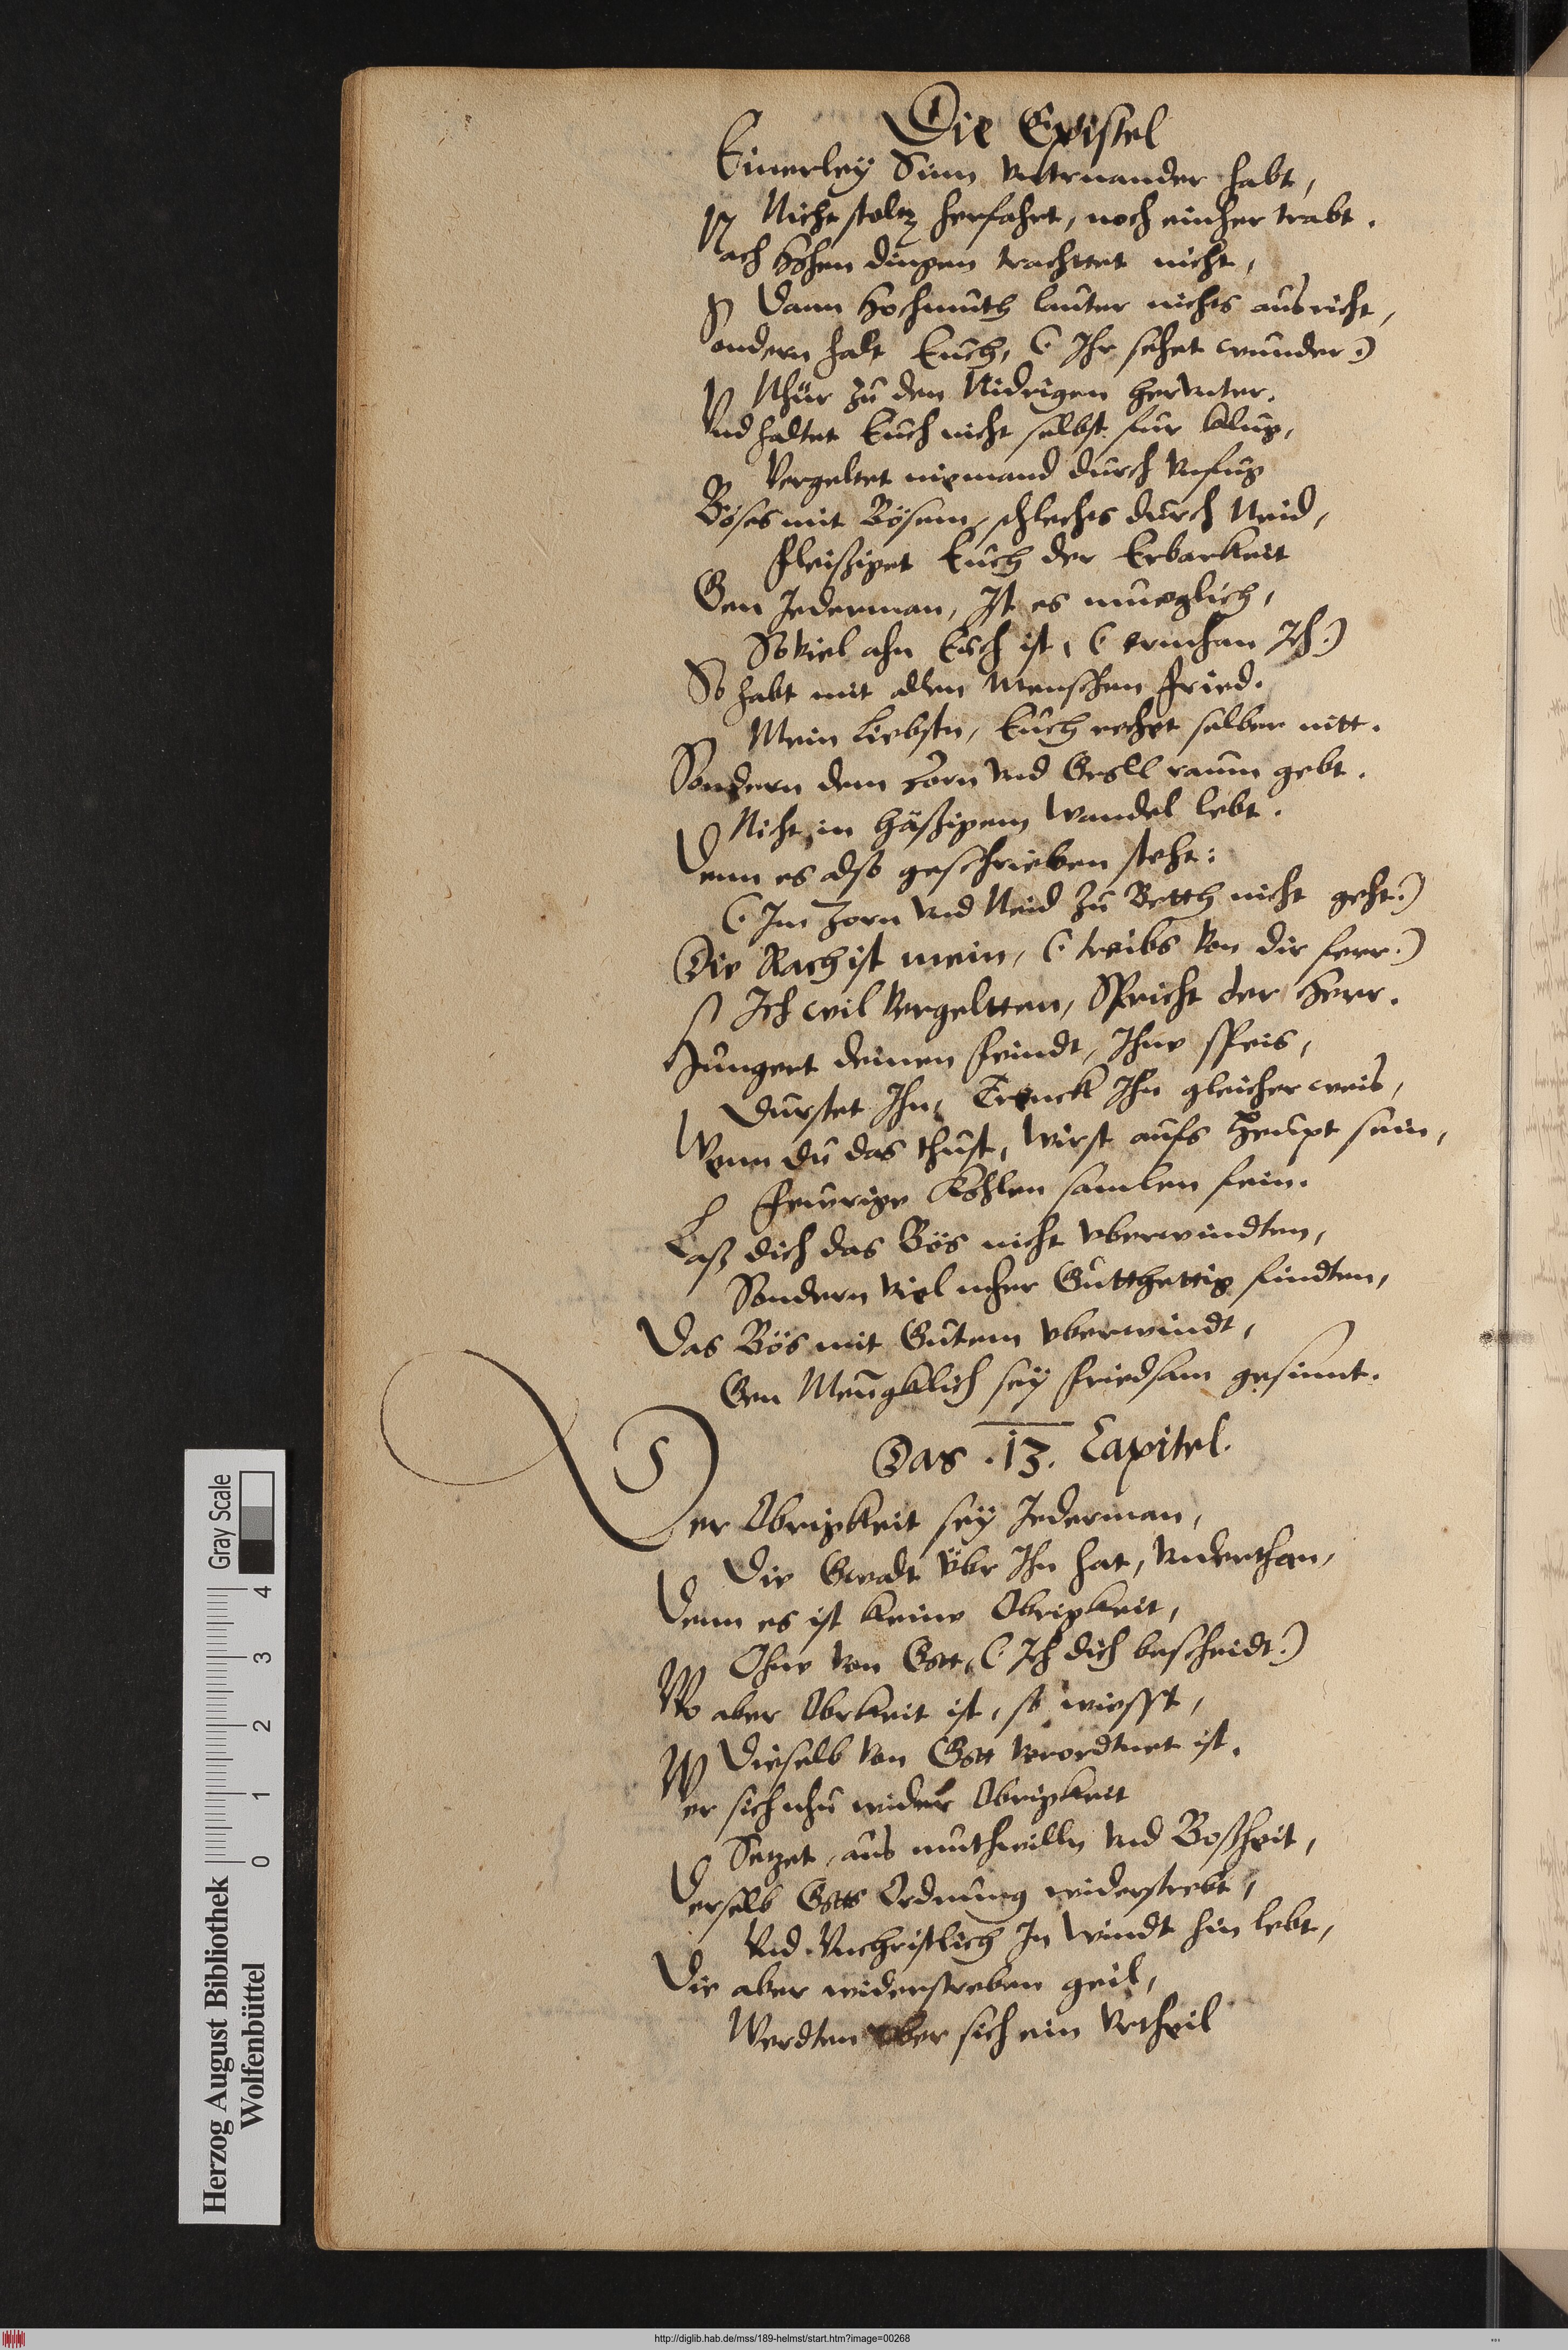 Die Epistel
Einerleÿ Sinn vnternander habt,
Nicht stoltz herfahrt, noch einher trabt.
Nach Hohen dingen trachttet nicht,
Dann Hochmuth lauter nichts ausricht,
Sondern halt Euch, (Ihr sehet wunder)
Nhur zu den Nidrigen herunter.
Vnd haltet Euch nicht selbst fur klug,
Vergeltet niemand durch Vnfug
Böses mit Bösem, schlechts durch Neid,
Fleißiget Euch der Erbarkeit
Gen Jederman, Ist es mueglich,
So viel ahn Euch ist, (ermhan Ich)
So habt mit allen Menschen fried.
Mein Liebstn, Euch rechet selber nitt.
Sondern dem Zorn vnd Groll raum gebt.
Nicht in häßigem Wandel lebt.
Denn es also geschrieben steht:
(Im Zorn vnd Neid zu Betth nicht geht)
Die Rach ist mein, (treibs von dir ferr)
Ich wil Vergeltten, Spricht der Herr.
Hungert deinen Feindt, Ihne Speis,
Durstet Ihn, Trenck Ihn gleicher weis,
Wenn du das thust, wirst aufs Heupt sein,
Feurige Kohlen samlen fein.
Laß dich das Bös nicht vberwindten,
Sondern viel mher Gutthettig findten,
Das Bös mit Gutem vberwindt,
Gen Mengklich seÿ friedsam gesinnt.
Das .13. Capitel.
Der Obrigkeit seÿ Jederman,
Die Gwalt übr Ihn hat, vnderthan,
Denn es ist keine Obrigkeit,
Ohne von Gott, (Ich dich bescheidt)
Wo aber Obrkeit ist, so wiesst,
Dieselb von Gott verordtnet ist.
Wer sich nhu wider Obrigkeit
Setzet, aus muthwilln vnd Boßheit,
Derselb Gotts Ordnung widerstrebt,
Vnd Vnchristlich In Windt hin lebt,
Die aber widerstreben geil,
Werdten vber sich ein Vrtheil
Herzog August Bibliothek
Wolfenbüttel
0 1 2 3 4
Gray Scale
http://diglib.hab.de/mss/189-helmst/start.htm?image=00268